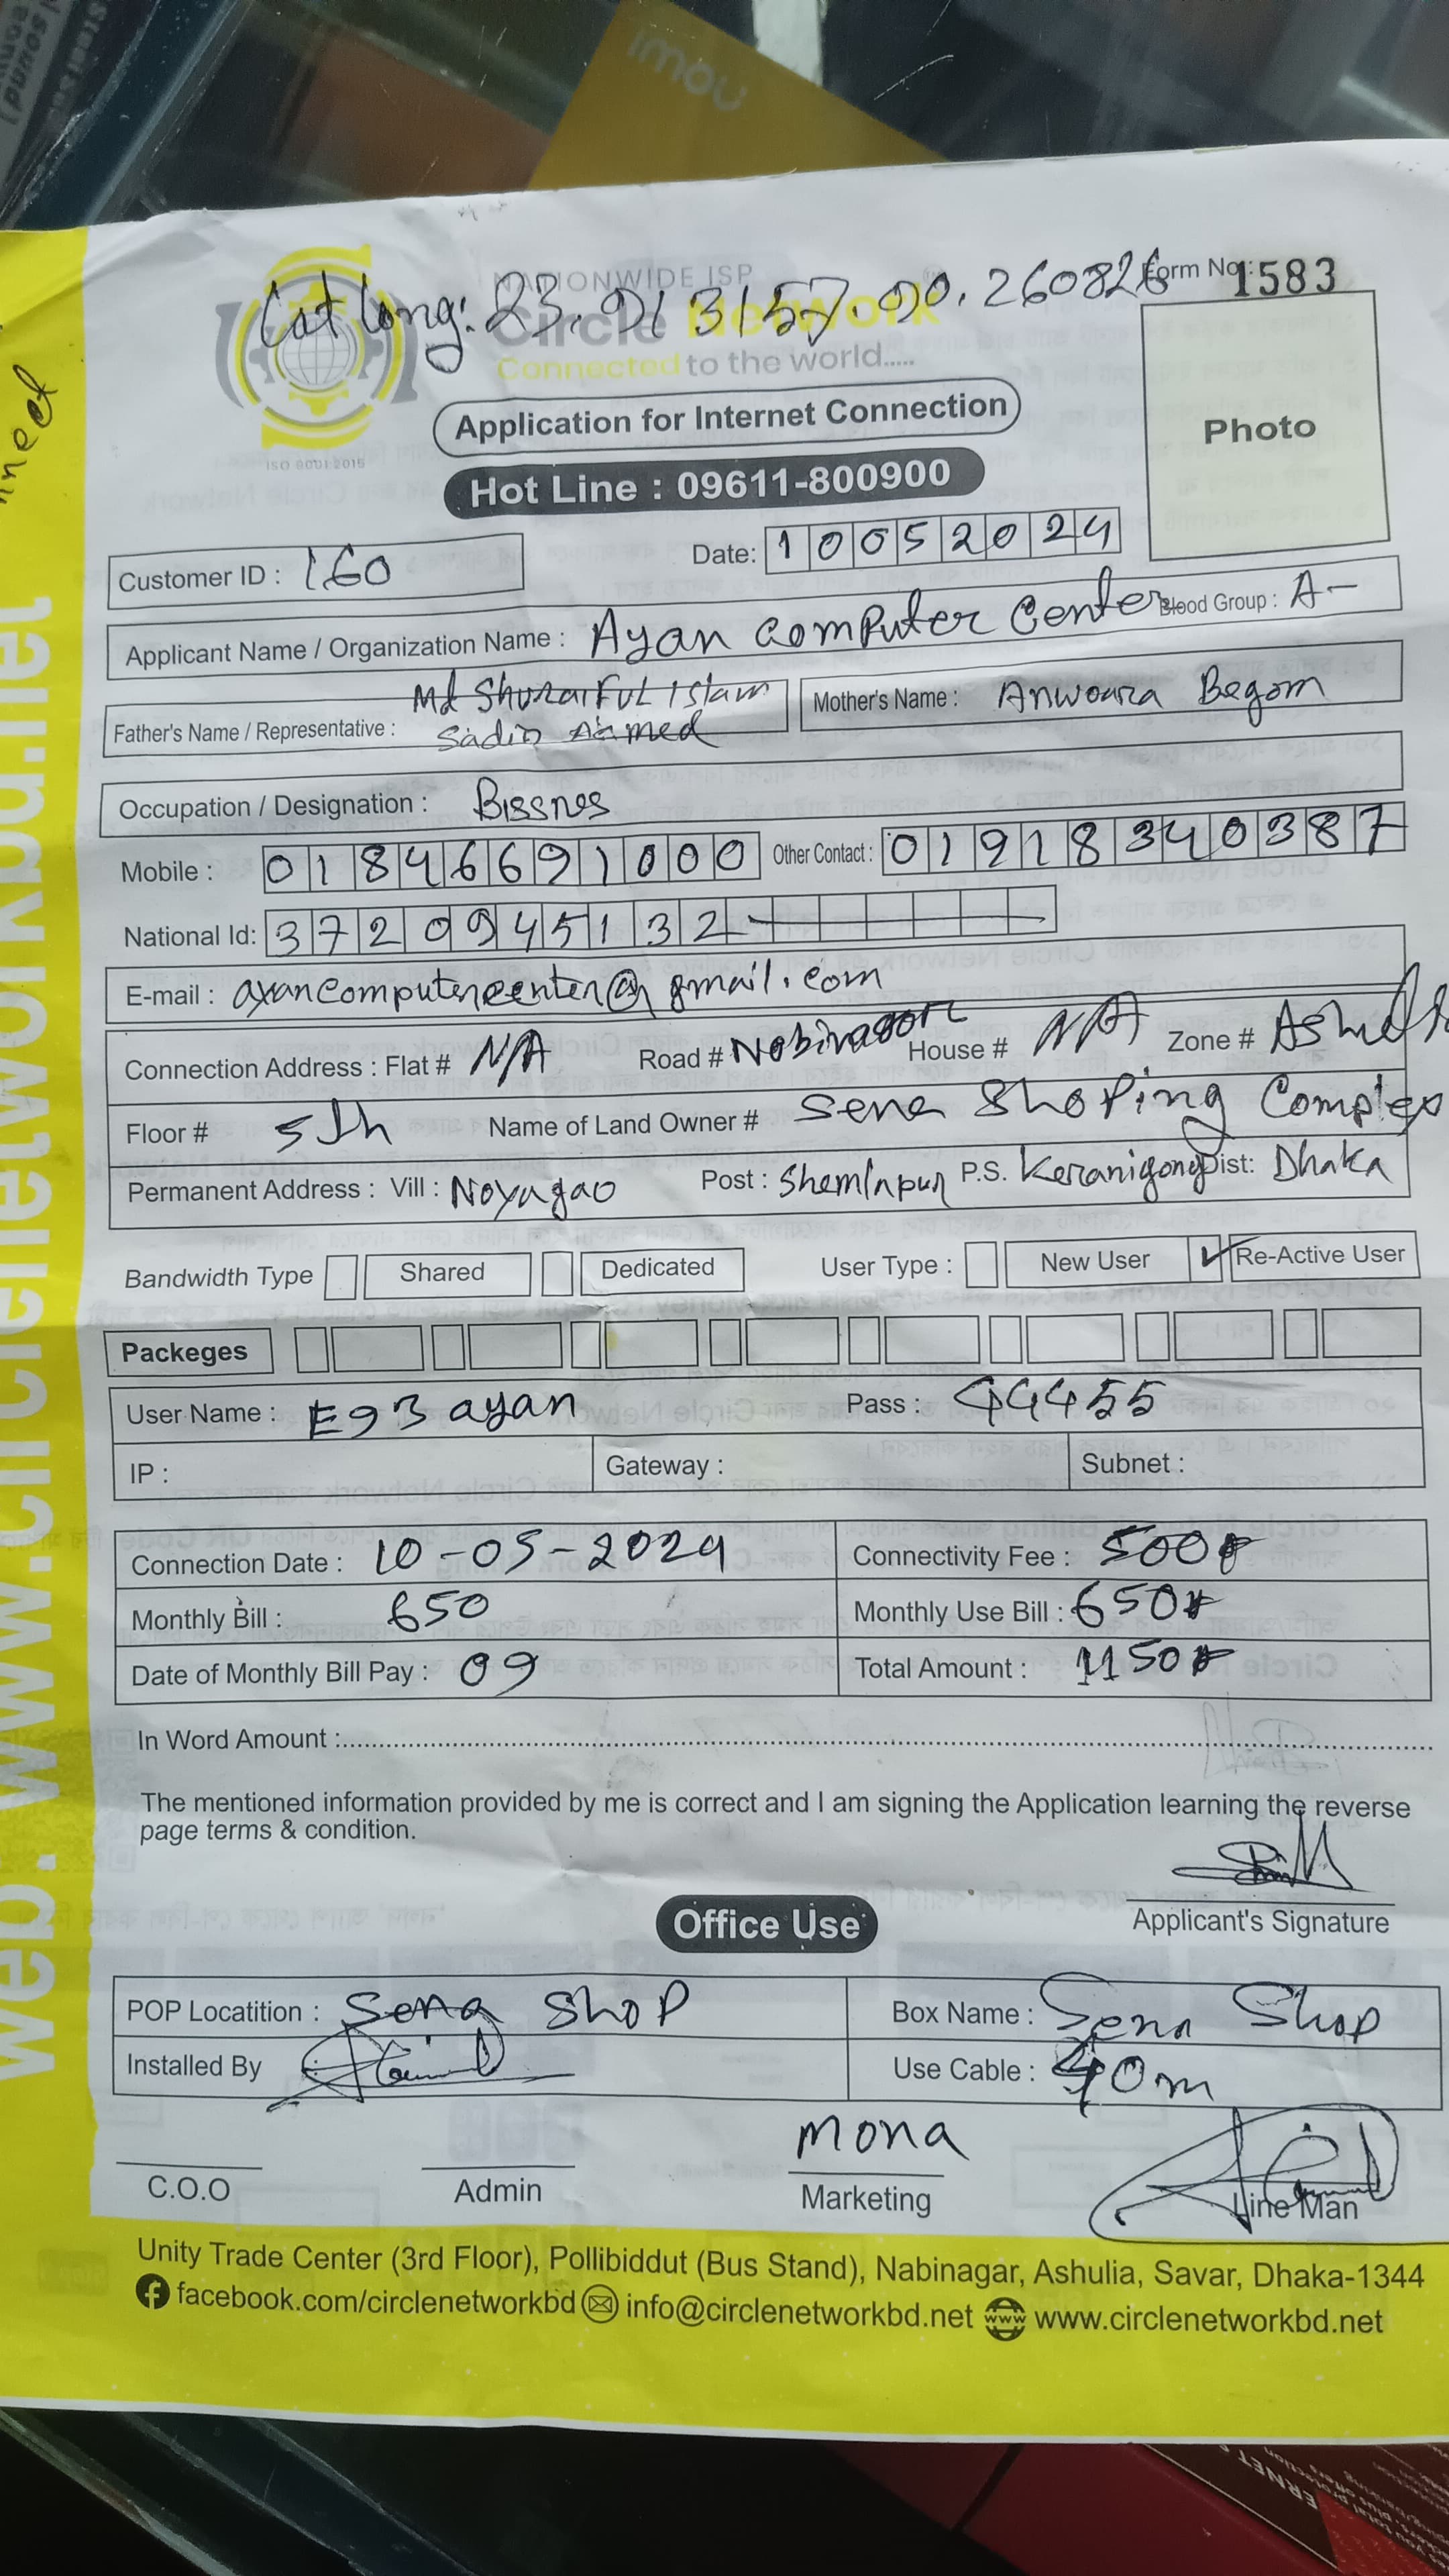 imou
NATIONWIDE ISP
Form No.: 1583
Cat long: 23.913157.90.260826
Circle Network
Connected to the world.....
ISO 9001:2015
Application for Internet Connection
Photo
Hot Line : 09611-800900
Customer ID : 160
Date: 10052024
Applicant Name / Organization Name : Ayan Computer Center Blood Group : A-
Father's Name / Representative : Md Shoraiful Islam Sadin Ahmed
Mother's Name : Anwoara Begom
Occupation / Designation : Bissnes
Mobile : 01846691000 Other Contact : 01918340387
National Id: 3720945132
E-mail : ayancomputercenter@gmail.com
Connection Address : Flat # N/A Road # Nobinagor House # N/A Zone #
Floor # 5th Name of Land Owner # Sena Shoping Complex
Permanent Address : Vill : Noyagao Post : Shemlapur P.S. Keranigong Dist: Dhaka
Bandwidth Type Shared Dedicated User Type : New User ✓ Re-Active User
Packeges
User Name : E93 ayan Pass : 44455
IP : Gateway : Subnet :
Connection Date : 10-05-2024 Connectivity Fee : 500৳
Monthly Bill : 650 Monthly Use Bill : 650৳
Date of Monthly Bill Pay : 09 Total Amount : 1150৳
In Word Amount :
The mentioned information provided by me is correct and I am signing the Application learning the reverse
page terms & condition.
Applicant's Signature
Office Use
POP Locatition : Sena Shop Box Name : Sena Shop
Installed By Use Cable : 40m
mona
C.O.O Admin Marketing Line Man
Unity Trade Center (3rd Floor), Pollibiddut (Bus Stand), Nabinagar, Ashulia, Savar, Dhaka-1344
facebook.com/circlenetworkbd info@circlenetworkbd.net www.circlenetworkbd.net
web: www.circlenetworkbd.net